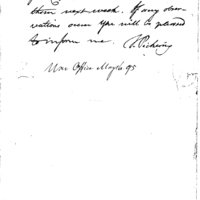 them next week. If any obser-
vations occur you will be pleased
to inform me. T. Pickering
War Office May 16 95